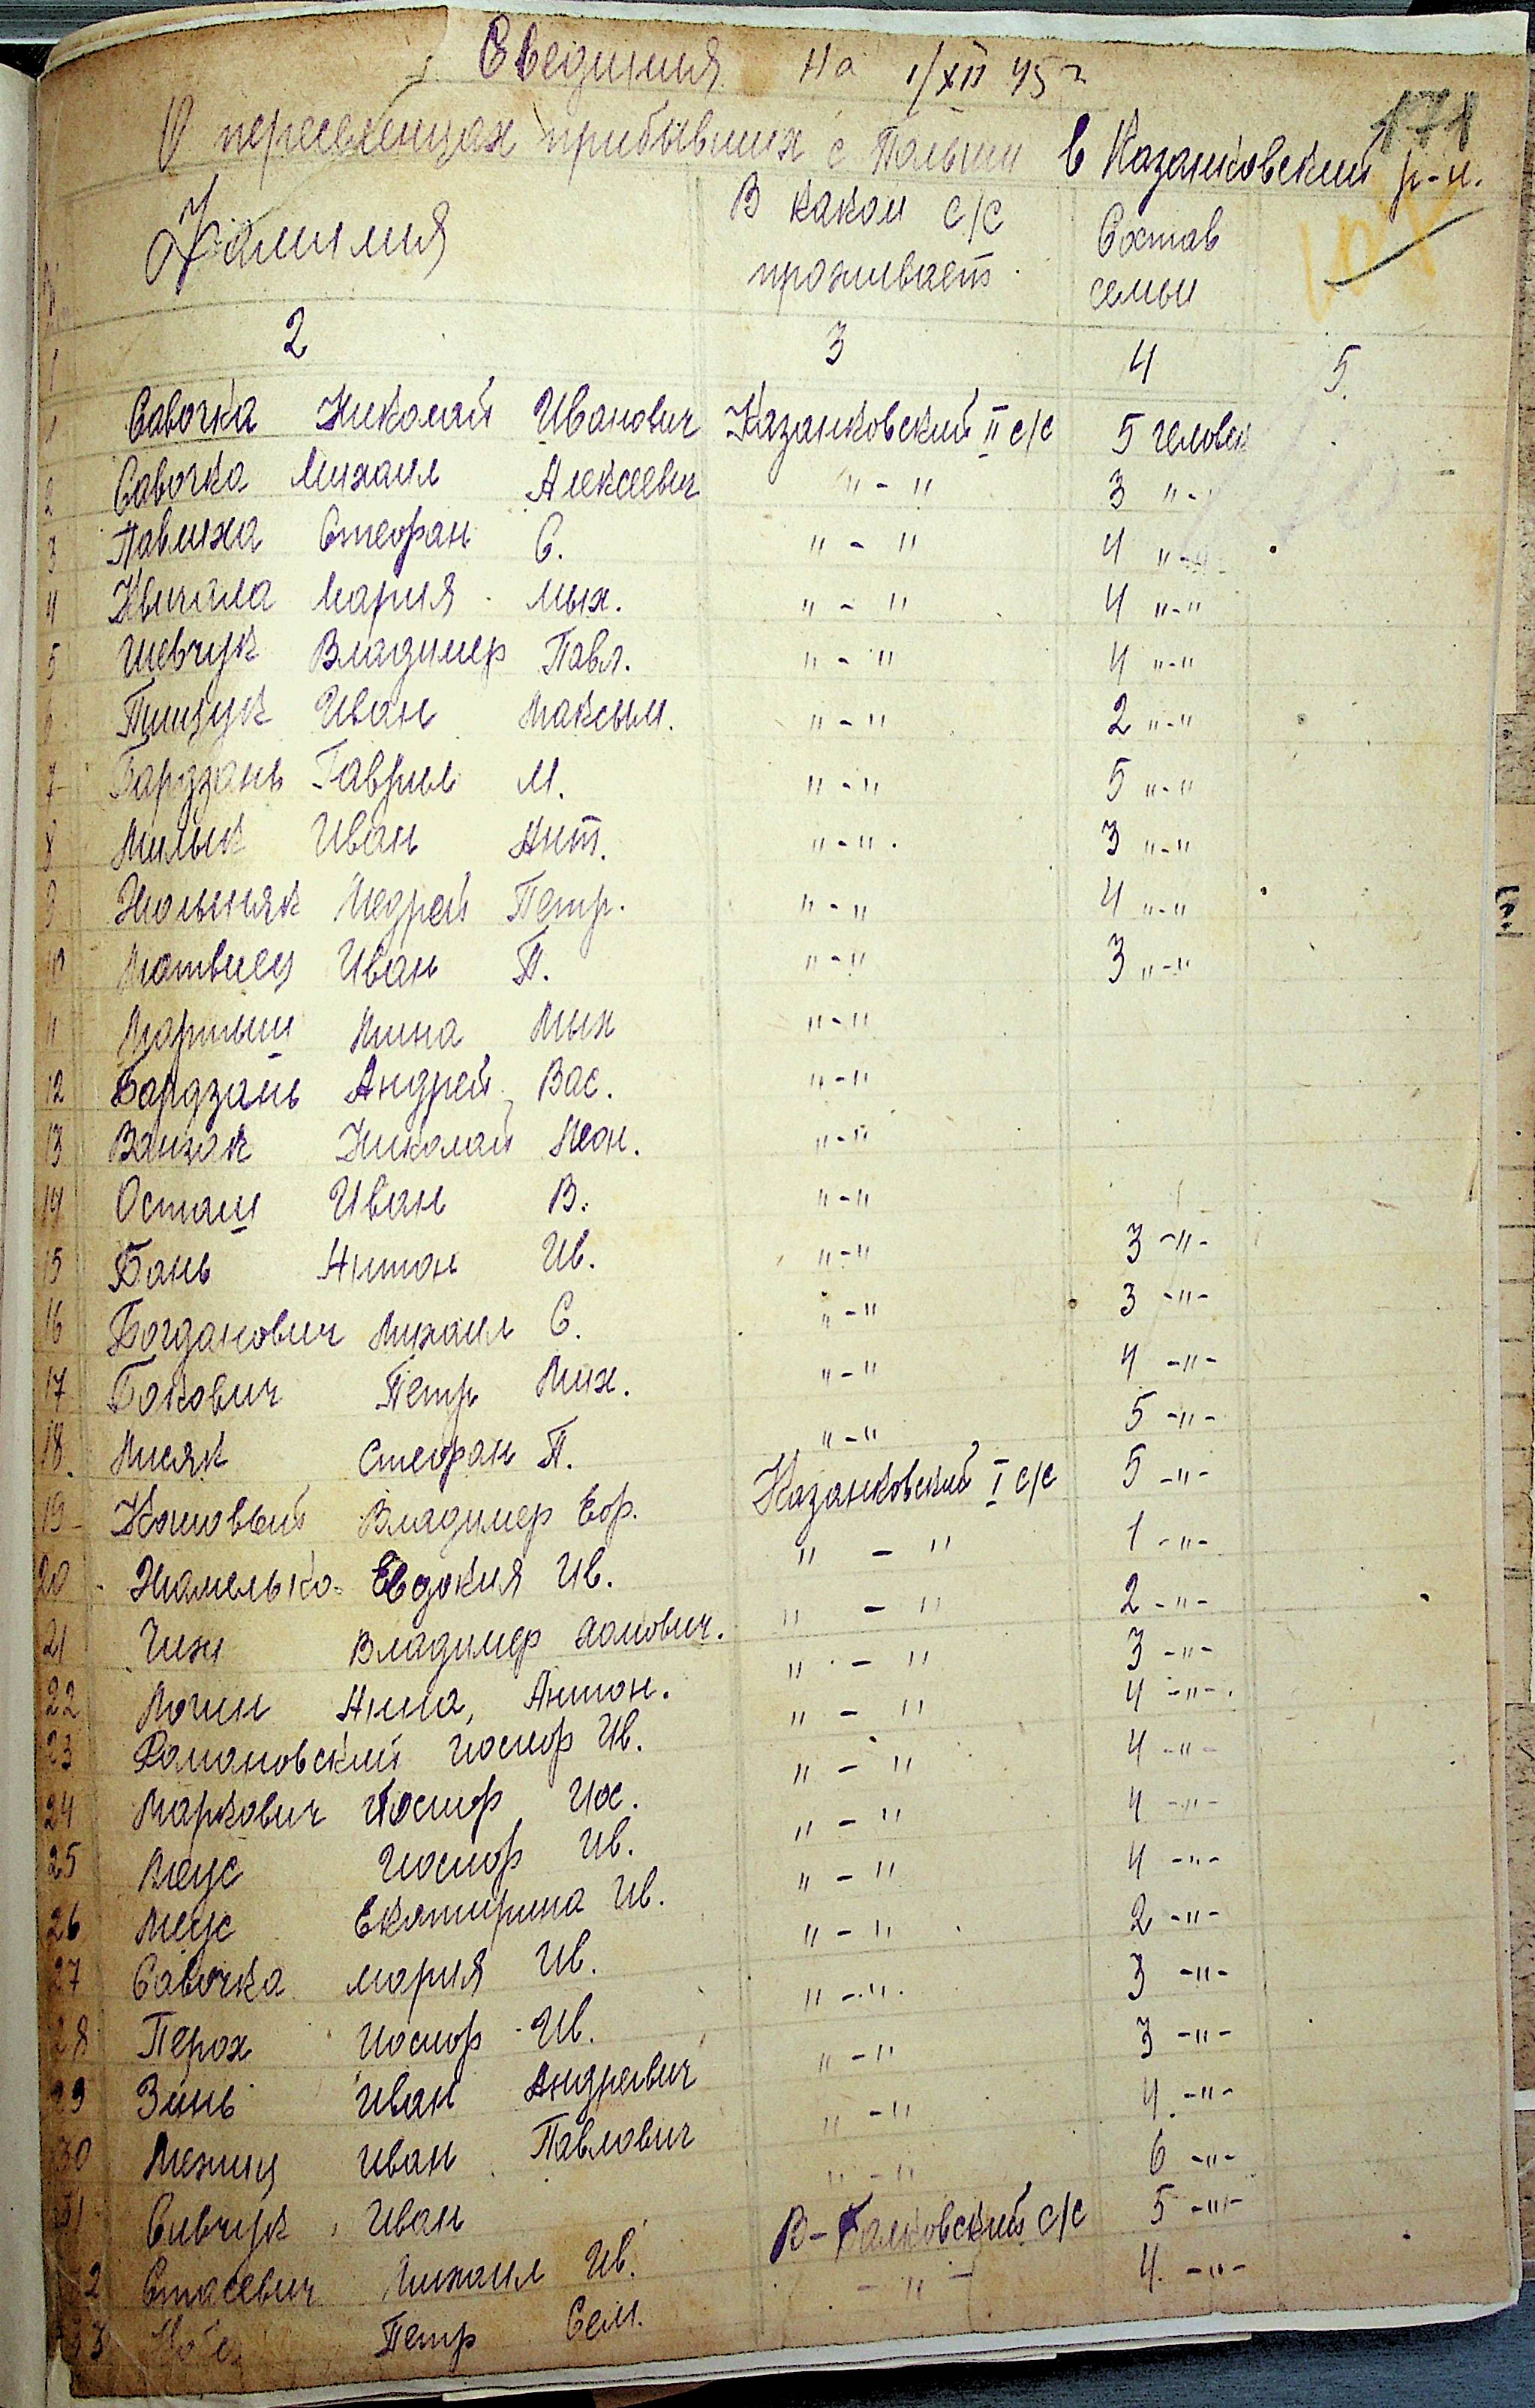 Свединия на 1/XII 45 г
О переселенцах прибывших с Польши в Казанковский р-н.
171
Фамилия В каком с/с проживает Состав семьи
1 2 3 4 5
1 Савочка Николай Иванович Казанковский II с/с 5 человек
2 Савочка Михаил Алексеевич "-" 3 "-"
3 Павлиха Стефан С. "-" 4 "-"
4 Квичала Мария Мих. "-" 4 "-"
5 Шевчук Владимер Павл. "-" 4 "-"
6 Пищук Иван Максым. "-" 2 "-"
7 Бардзань Гаврил М. "-" 5 "-"
8 Милык Иван Ант. "-" 3 "-"
9 Андрей Петр. "-" 4 "-"
10 Матвиец Иван П. "-" 3 "-"
11 Мартыш Мина Мих "-"
12 Бардзань Андрей Вас. "-"
13 Николай Леон. "-"
14 Осташ Иван В. "-"
15 Бань Антон Ив. "-" 3 -"-
16 Богданович Михаил С. "-" 3 -"-
17 Бокович Петр Мих. "-" 4 -"-
18. Лисяк Стефан П. "-" 5 -"-
19 Владимер Еф. Казанковский I с/с 5 -"-
20 Евдокия Ив. "-" 1 -"-
21 Чиж Владимер "-" 2 -"-
22 Анна Антон. "-" 3 -"-
23 Романовский Иосиф Ив. "-" 4 -"-
24 Маркович Иосиф Иос. "-" 4 -"-
25 Меус Иосиф Ив. "-" 4 -"-
26 Меус Екатирина Ив. "-" 4 -"-
27 Савочка Мария Ив. "-" 2 -"-
28 Перох Иосиф Ив. "-" 3 -"-
29 Зинь Иван Андреевич "-" 3 -"-
30 Иван Павлович "-" 4 -"-
31 Савчук Иван "-" 6 -"-
2 Стасевич Михаил Ив. В-Балковский с/с 5 -"-
3 Петр Сем. -"- 4 -"-